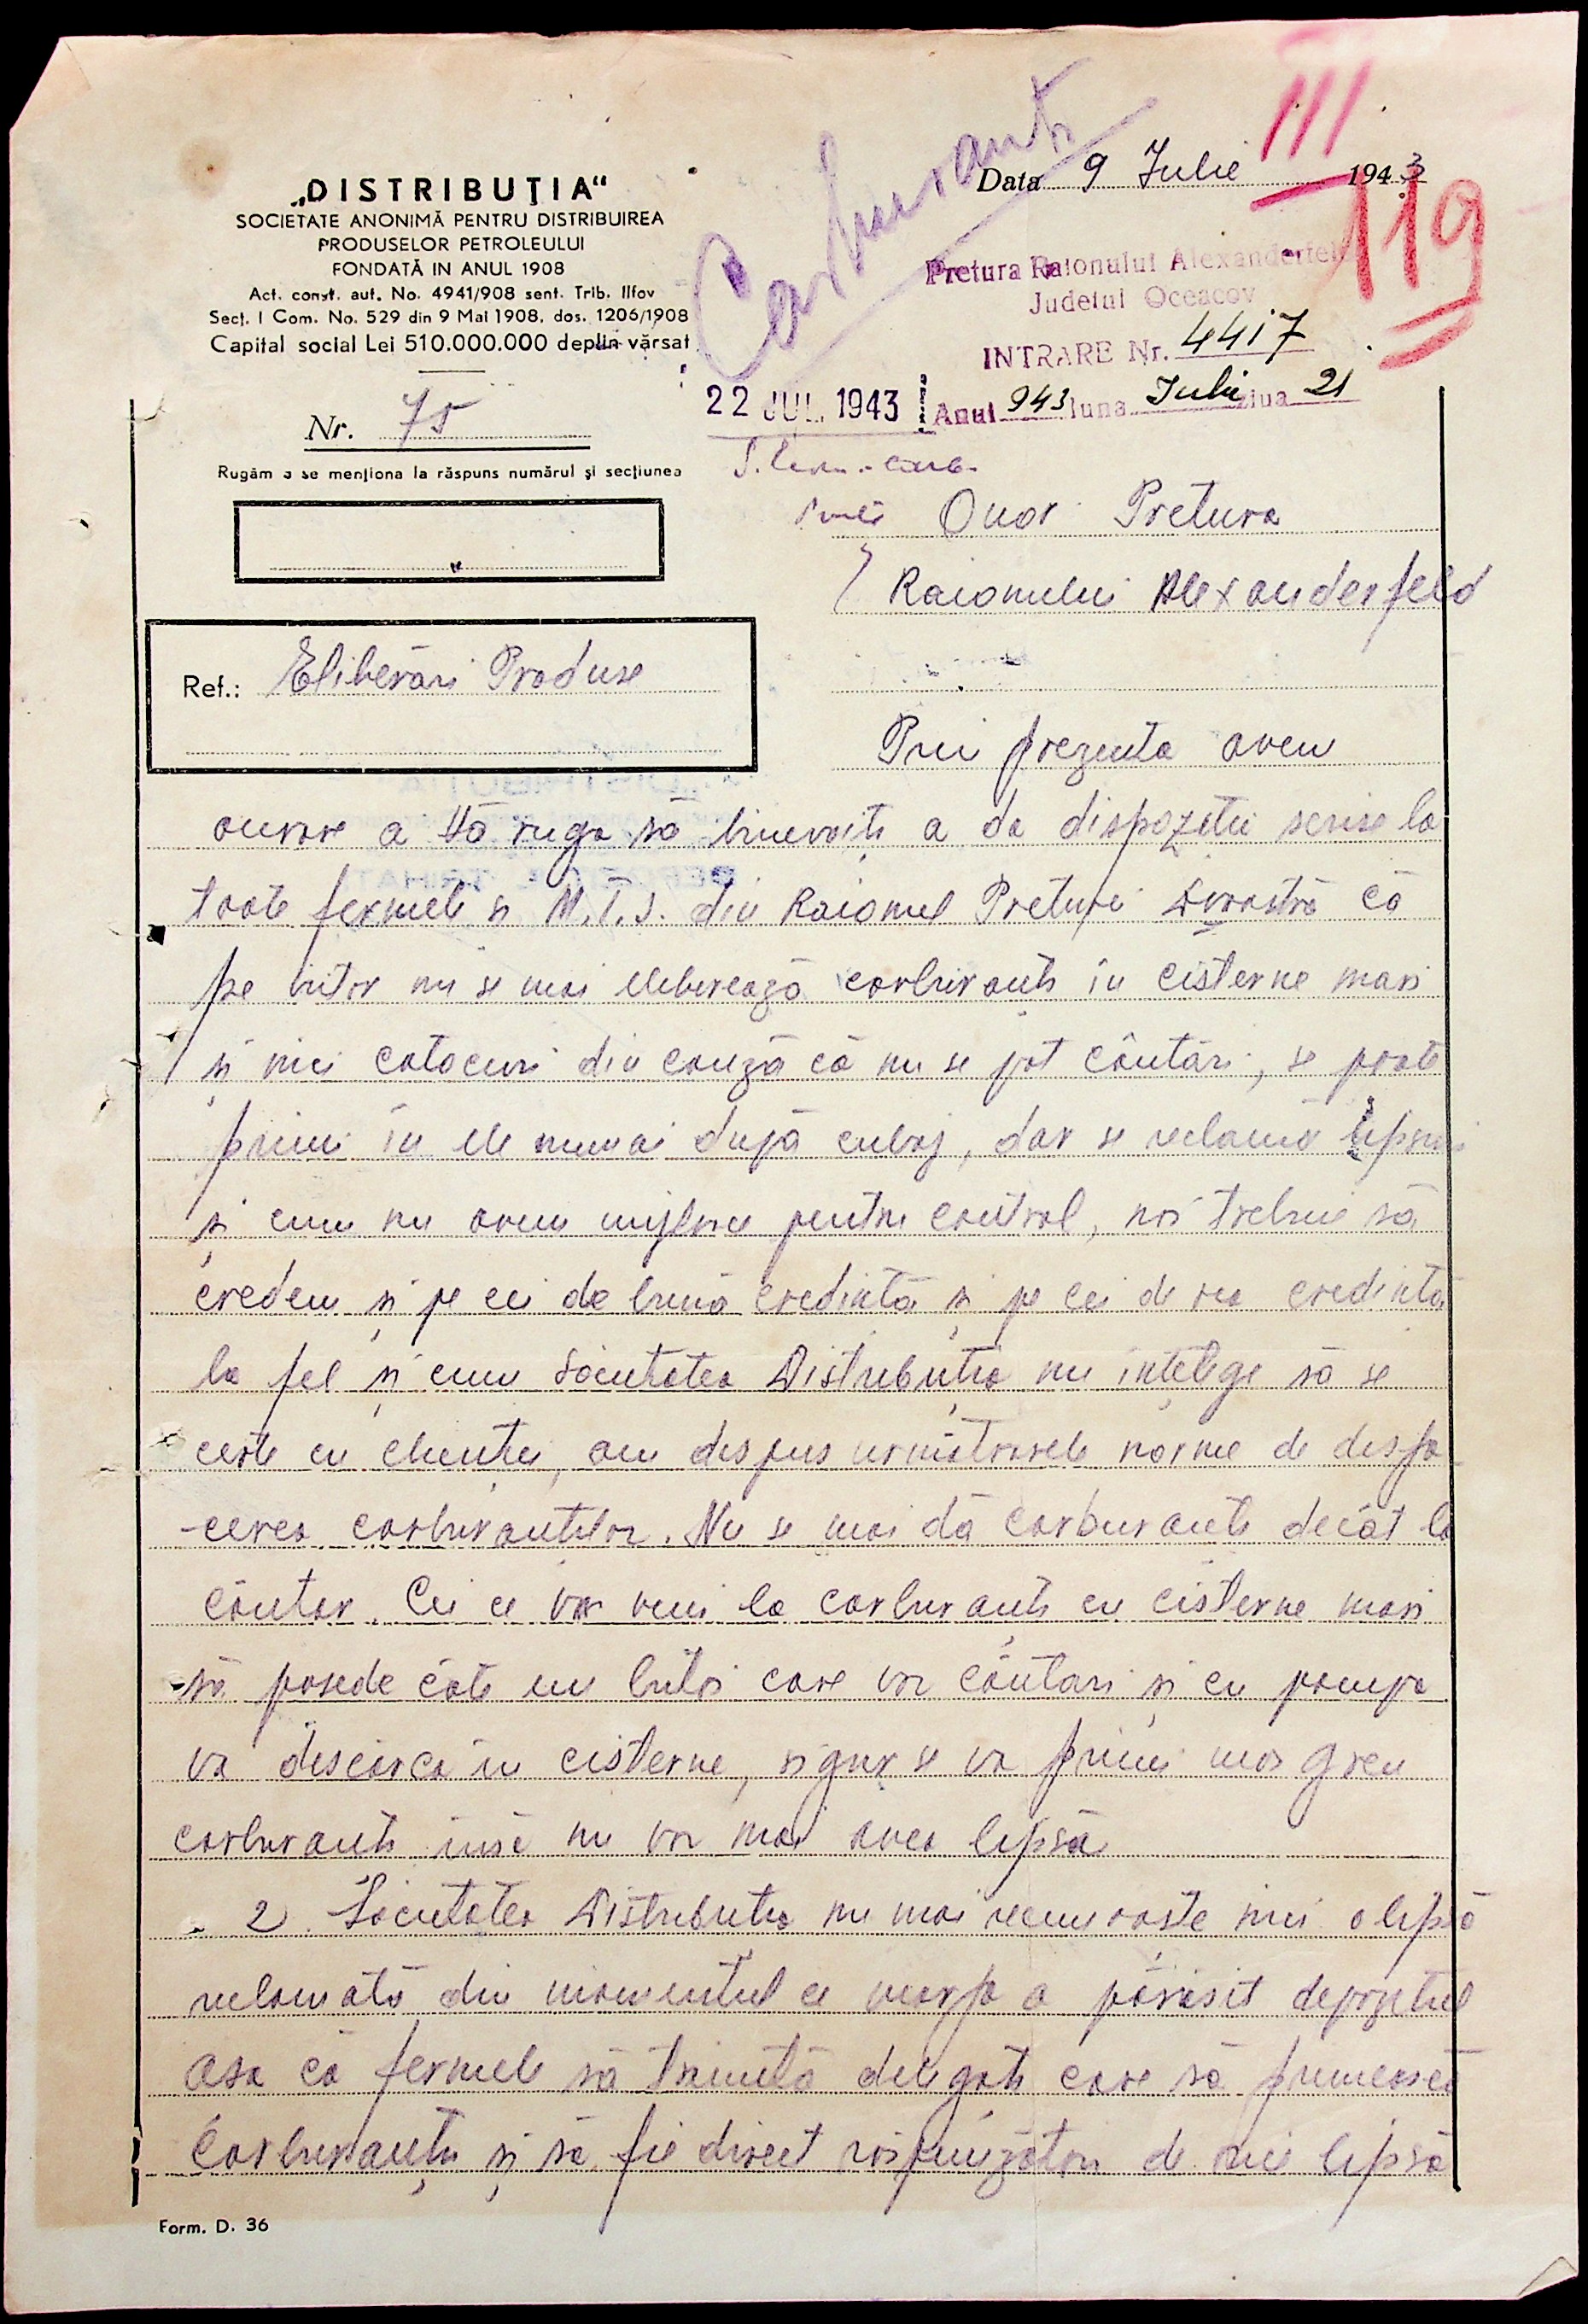 Carburanți
III
119
Data 9 Iulie 1943
„DISTRIBUȚIA“
SOCIETATE ANONIMĂ PENTRU DISTRIBUIREA
PRODUSELOR PETROLEULUI
FONDATĂ IN ANUL 1908
Act. const. aut. No. 4941/908 sent. Trib. Ilfov
Secț. I Com. No. 529 din 9 Mai 1908, dos. 1206/1908
Capital social Lei 510.000.000 deplin vărsat
Pretura Raionului Alexanderfeld
Județul Oceacov
INTRARE Nr. 4417
Anul 943 luna Iulie ziua 21
22 JUL. 1943
Nr. 75
Rugăm a se menționa la răspuns numărul și secțiunea
Onor Pretura
Raionului Alexanderfeld
Ref.: Eliberări Produse
Prin prezenta avem
onoare a Vă ruga să binevoiți a da dispoziții scrise la
toate fermele și M.T.S. din Raionul Preturi Dvoastră că
pe viitor nu se mai eliberează carburanți în cisterne mari
și nici cotocuri din cauză că nu se pot cântări, se poate
primi în ele numai după cubaj, dar se reclamă lipsuri
și cum nu avem mijloace pentru control, noi trebuie să
credem și pe cei de bună credință și pe cei de rea credință
la fel și cum Societatea Distribuția nu ințelege să se
certe cu clienții, am dispus următoarele norme de desfa-
-cerea carburanților. Nu se mai dă carburanți decât la
cântar. Cei ce vor veni la carburanți cu cisterne mari
să posede câte un butoi care vor cântari și cu pompa
va descărca in cisterne, sigur se va primi mai greu
carburanți însă nu vor mai avea lipsă
2. Societatea Distributia nu mai recunoaste nici o lipsă
reclamată din momentul ce marfa a părăsit depozitul
asa că fermele să trimită delegati care să primească
carburanți și să fie direct răspunzători de orice lipsă
Form. D. 36